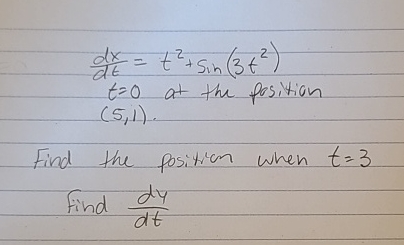 dx/dt = t² + sin(3t²)
t=0 at the position
(5,1).
Find the position when t=3
find dy/dt